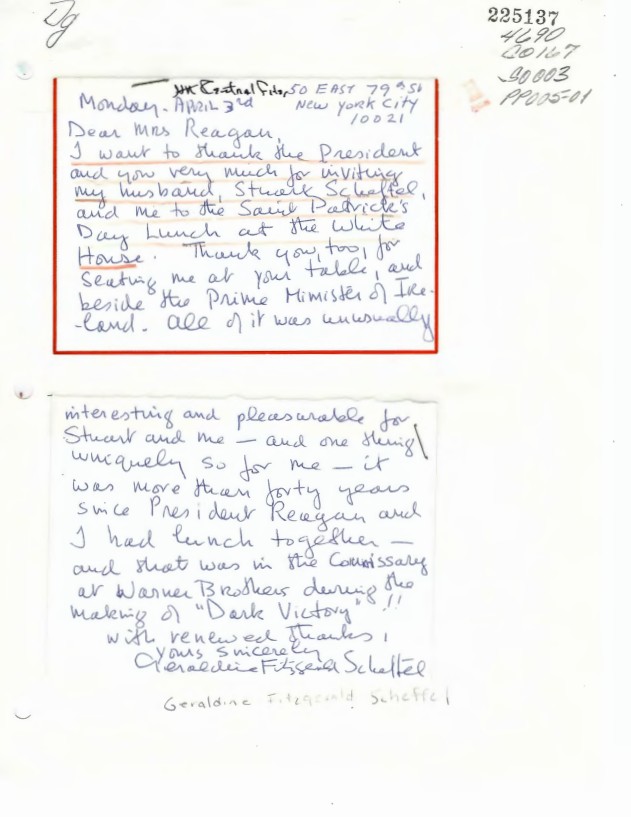 Dg
225137
4690
CO167
SO003
PP005-01
WH Central Files
50 EAST 79th St
Monday. APRIL 3rd New York City
10021
Dear Mrs Reagan,
I want to thank the President
and you very much for inviting
my husband, Stuart Scheftel,
and me to the Saint Patrick's
Day Lunch at the White
House. Thank you, too, for
seating me at your table, and
beside the Prime Minister of Ire-
-land. All of it was unusually
interesting and pleasurable for
Stuart and me — and one thing
uniquely so for me — it
was more than forty years
since President Reagan and
I had lunch together —
and that was in the Commissary
at Warner Brothers during the
making of "Dark Victory" !!
with renewed thanks,
yours sincerely
Geraldine Fitzgerald Scheftel
Geraldine Fitzgerald Scheffel